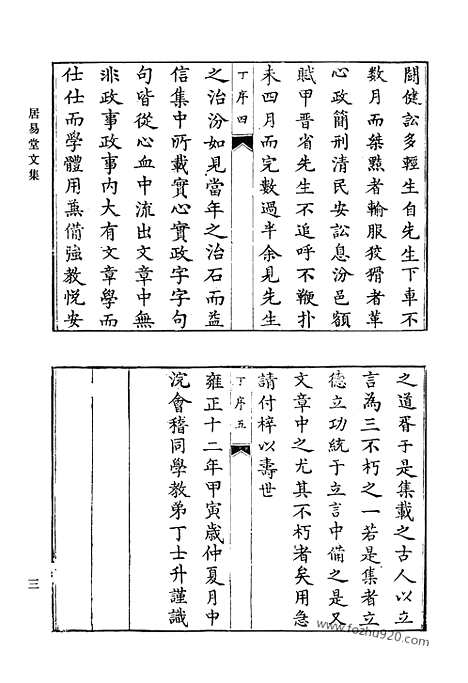 居易堂文集
鬪健訟多輕生自先生下車不
數月而桀黠者輸服狡猾者革
心政簡刑清民安訟息汾邑額
賦甲晉省先生不追呼不鞭扑
未四月而完數過半余見先生
丁序四
之治汾如見當年之治石而益
信集中所載實心實政字字句
句皆從心血中流出文章中無
非政事政事內大有文章學而
仕仕而學體用兼備強教悅安
之道胥于是集載之古人以立
言為三不朽之一若是集者立
德立功統于立言中備之是又
文章中之尤其不朽者矣用急
請付梓以壽世
丁序五
雍正十二年甲寅歲仲夏月中
浣會稽同學教弟丁士升謹識
三
www.fozhu920.com